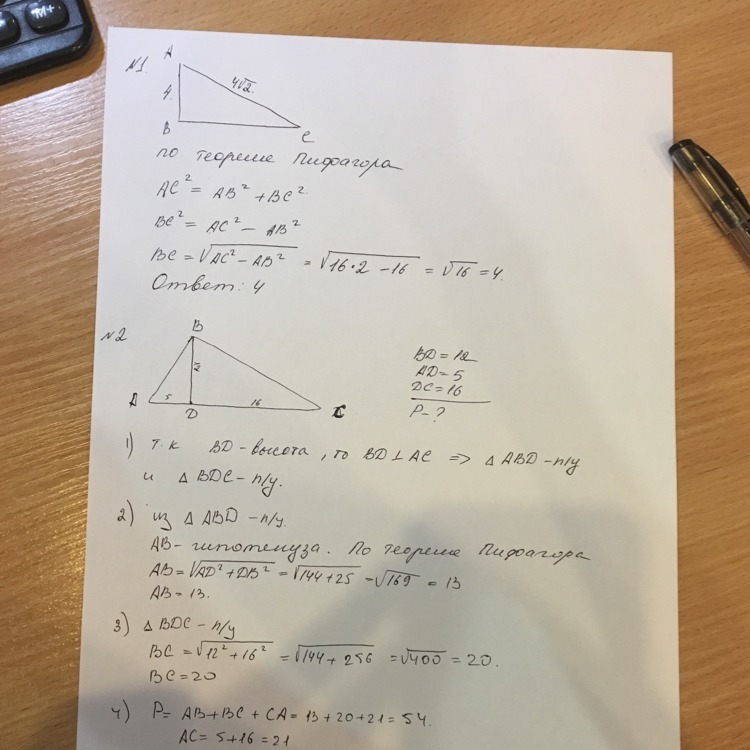 M+
№1.
A
4√2.
4.
B
C
по теореме Пифагора
AC² = AB² + BC².
BC² = AC² − AB²
BC = √AC² − AB² = √16•2 − 16 = √16 = 4.
Ответ: 4
№2
B
12
A
5
16
D
C
BD = 12
AD = 5
DC = 16
P − ?
1) т.к BD − высота, то BD ⊥ AC ⇒ △ ABD − п/у
и △ BDC − п/у.
2) из △ ABD − п/у.
AB − гипотенуза. По теореме Пифагора
AB = √AD² + DB² = √144 + 25 = √169 = 13
AB = 13.
3) △ BDC − п/у
BC = √12² + 16² = √144 + 256 = √400 = 20.
BC = 20
4) P = AB + BC + CA = 13 + 20 + 21 = 54.
AC = 5 + 16 = 21